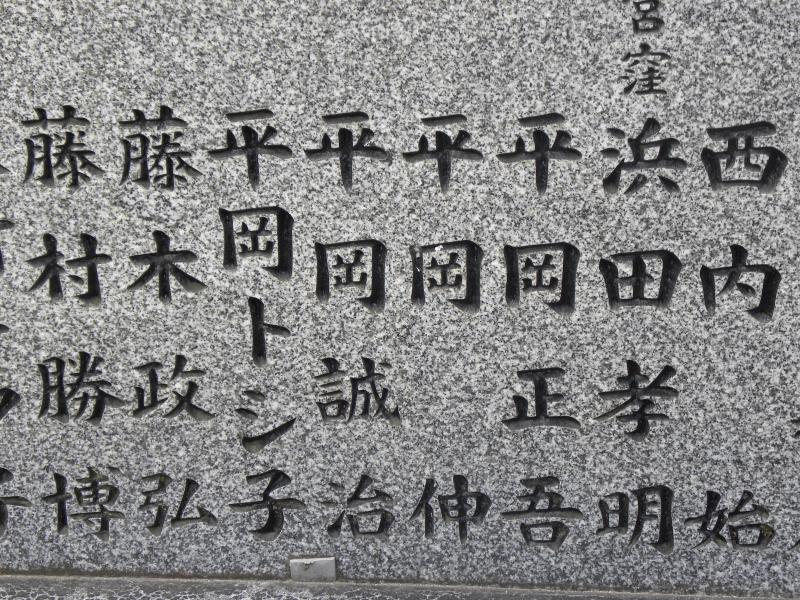 西内始
宮窪
浜田孝明
平岡正吾
平岡伸
平岡誠治
平岡トシ子
藤木政弘
藤村勝博